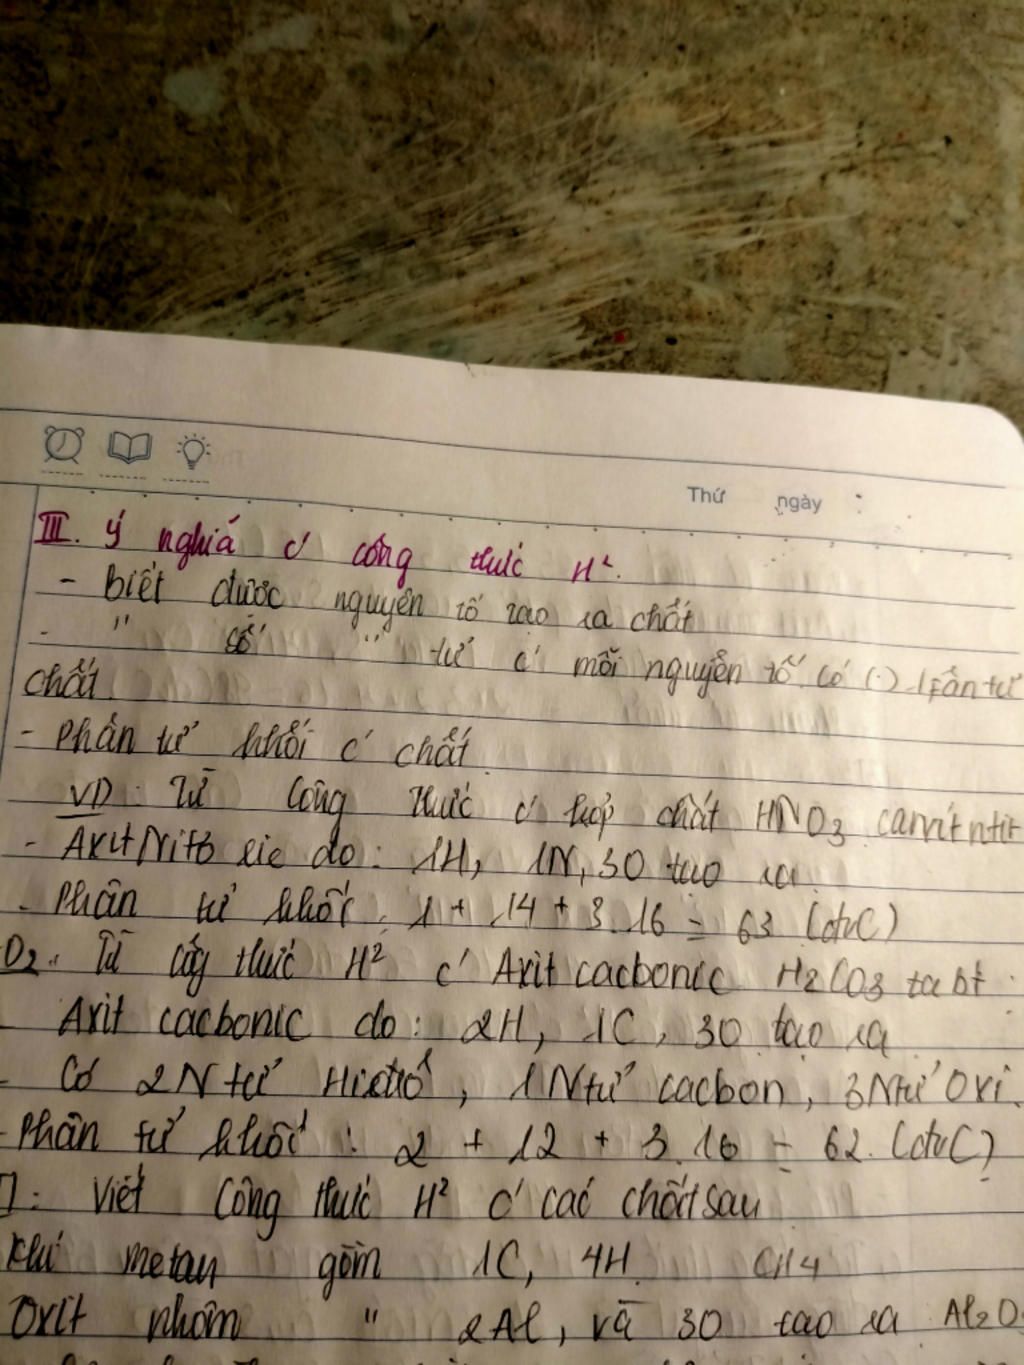 Thứ ngày :
III. Ý nghiã c' công thức H².
- Biết được nguyên tố tạo ra chất
- " số " tử c' mỗi nguyên tố có (.) 1 fân tử
chất.
- Phân tử khối c' chất.
VD: Từ công thức c' hợp chất HNO3
- Axit Nitơ ric do: 1H, 1N, 3O tạo ra.
- Phân tử khối: 1 + 14 + 3.16 = 63 (đvC)
D2: Từ công thức H² c' Axit cacbonic H2CO3 ta bt:
- Axit cacbonic do: 2H, 1C, 3O tạo ra
- Có 2Ntử Hiđrô, 1Ntử cacbon, 3Ntử Oxi.
- Phân tử khối: 2 + 12 + 3.16 = 62. (đvC)
: Viết công thức H² c' các chất sau
Khí metan gồm 1C, 4H CH4
Oxit nhôm " 2Al, và 3O tạo ra Al2O